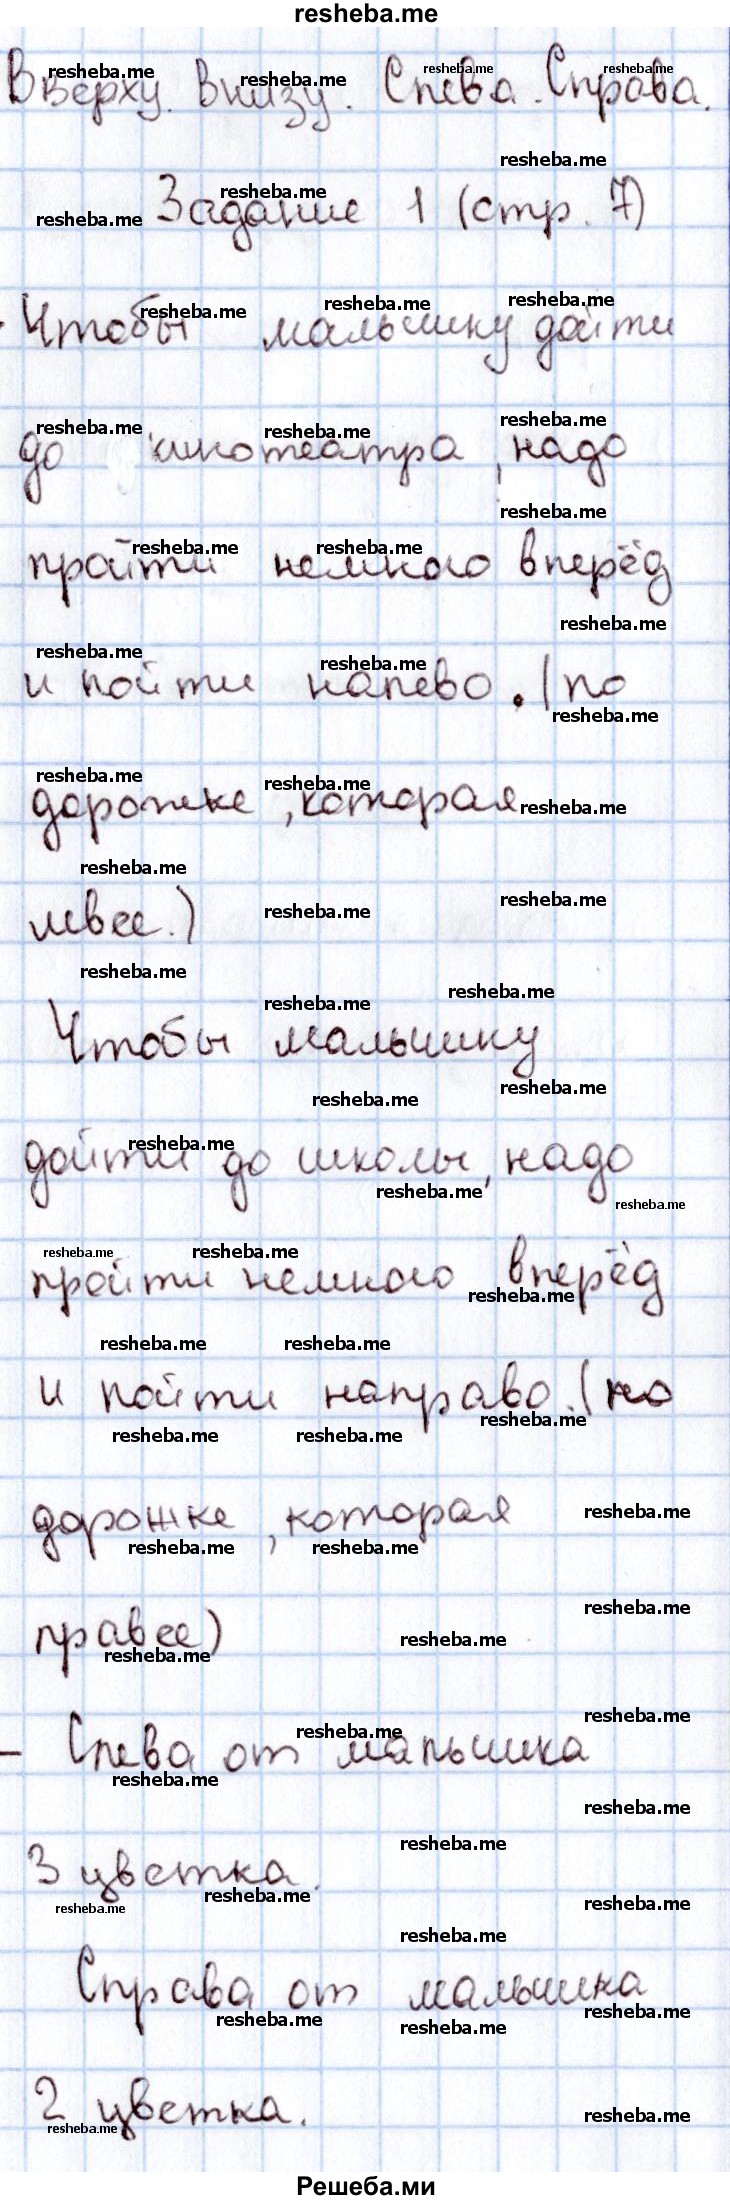 resheba.me
Вверху. Внизу. Слева. Справа.
Задание 1 (стр. 7)
- Чтобы малышку дойти
до кинотеатра, надо
пройти немного вперёд
и пойти налево. (по
дорожке, которая
левее.)
Чтобы малышку
дойти до школы, надо
пройти немного вперёд
и пойти направо. (по
дорожке, которая
правее)
- Слева от малышка
3 цветка.
Справа от малышка
2 цветка.
Решеба.ми